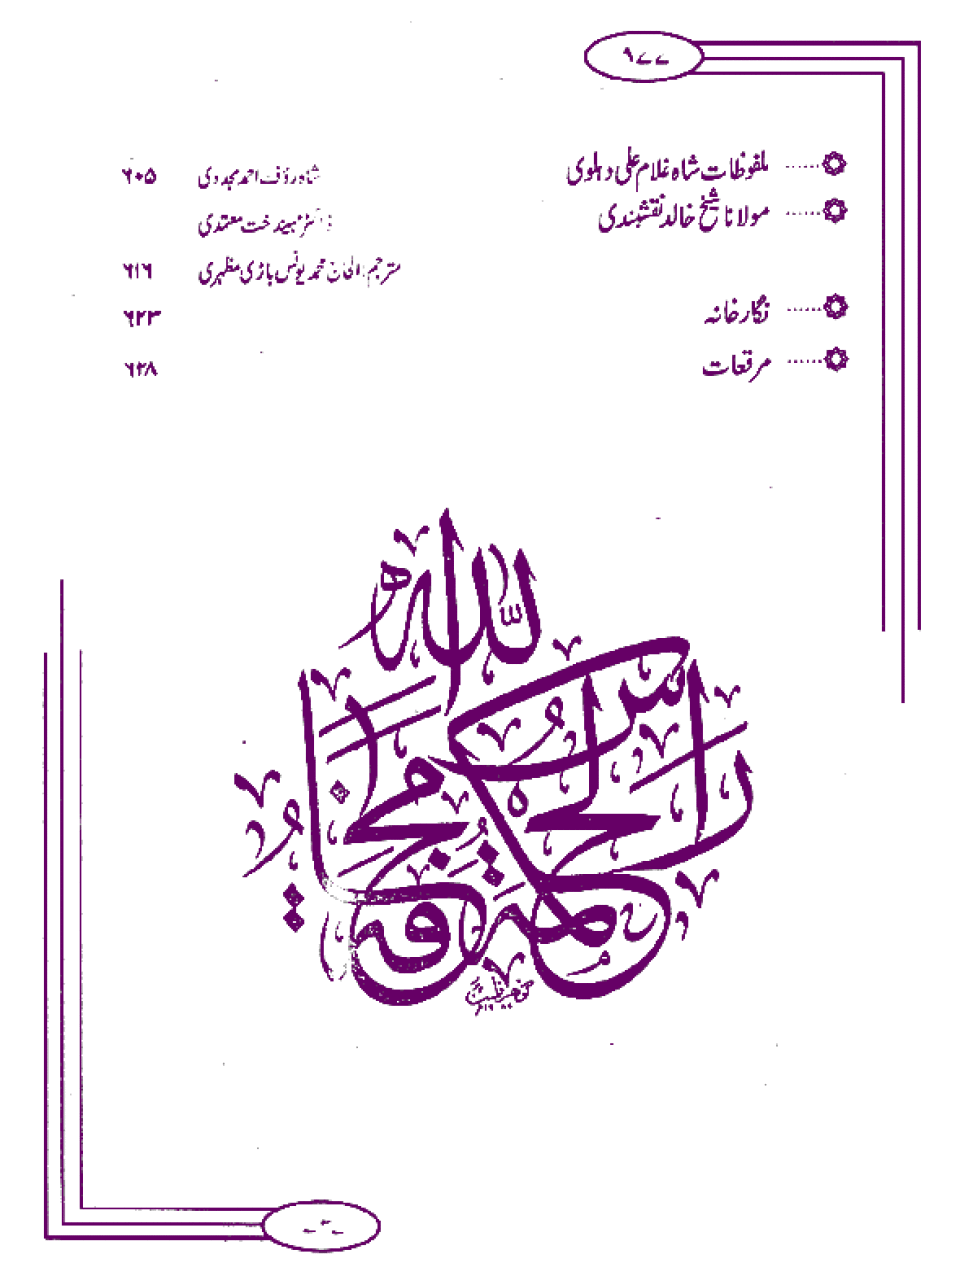 ۹۷۷
ملفوظات شاہ غلام علی دہلوی ...... شاہ رؤف احمد مجددی ۶۰۵
مولانا شیخ خالد نقشبندی ...... ڈاکٹر مہیندخت معتمدی
مترجم: الحاج محمد یونس باڑی مظہری ۶۱۶
نگارخانہ ...... ۶۲۳
مرقعات ...... ۶۳۸
راس الحكمة مخافة الله